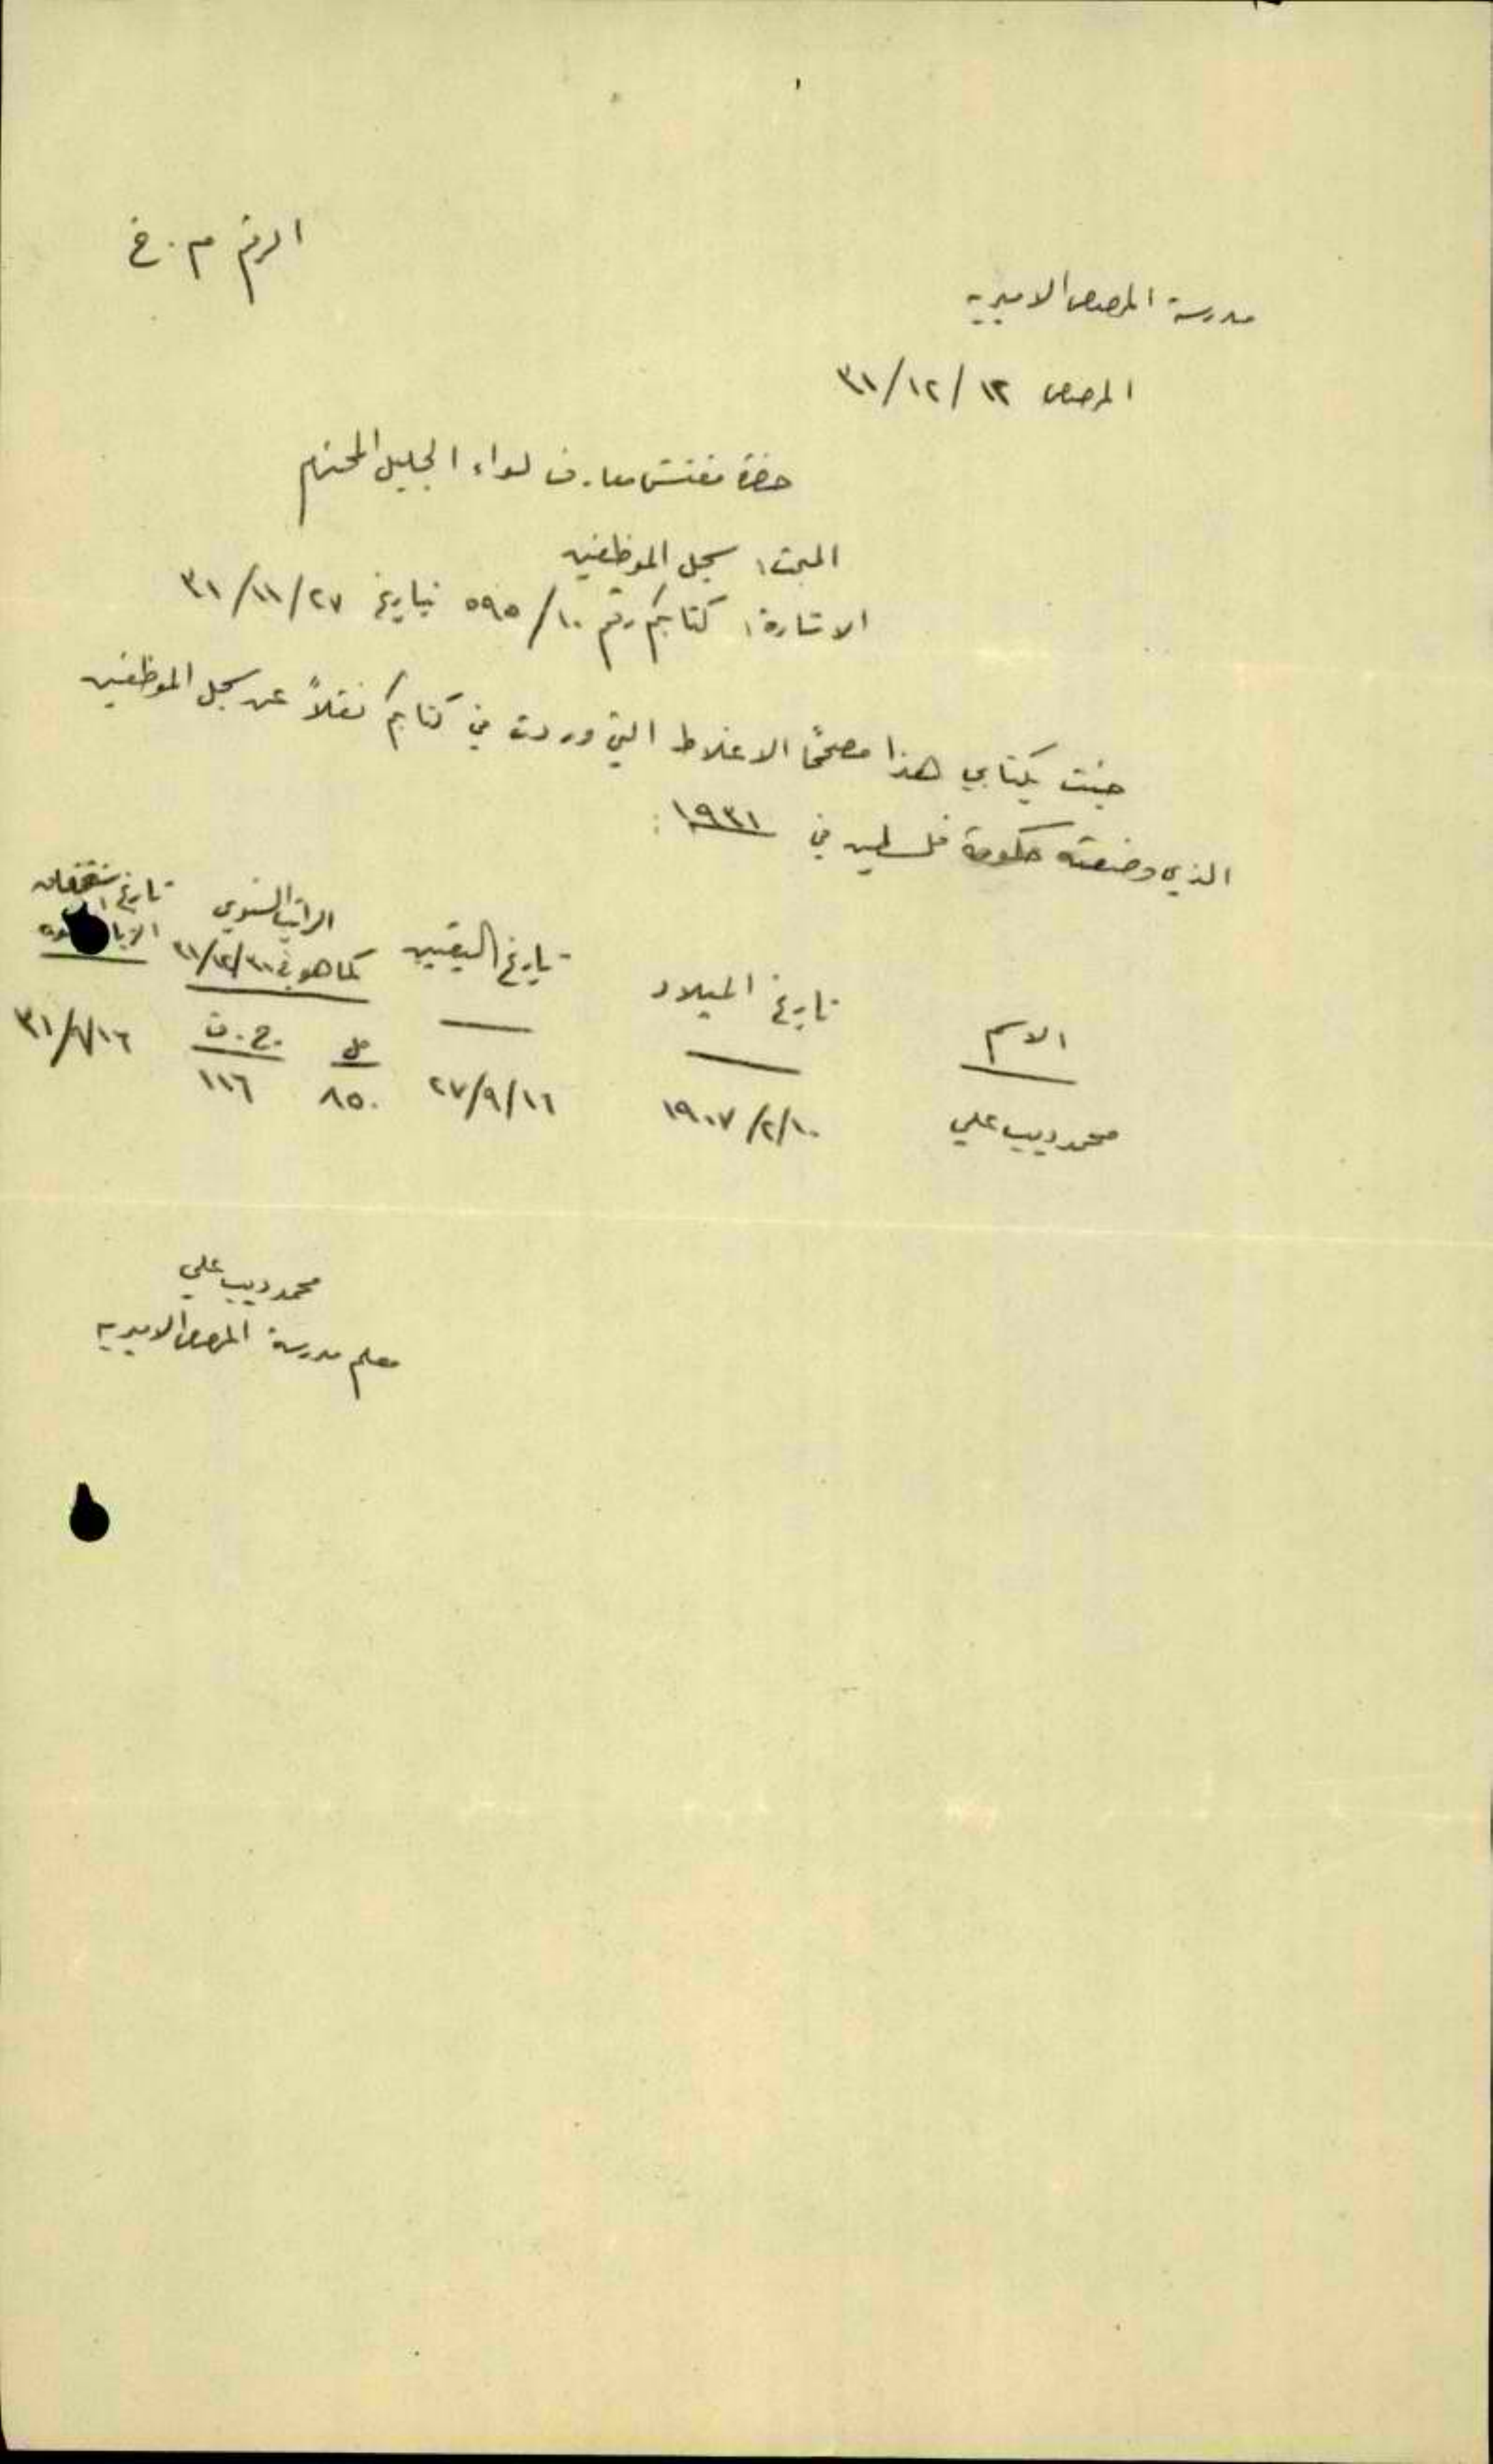 الرقم م . خ
مدرسة المرصص الاميرية
المرصص ١٢ /١٢/ ٣١
حضرة مفتش معارف لواء الجليل المحترم
المبحث: سجل الموظفين
الاشارة: كتابكم رقم ١٠/ ٥٩٥ بتاريخ ٢٧/ ١١/ ٣١
جئت بكتابي هذا مصححًا الاغلاط التي وردت في كتابكم نقلاً عن سجل الموظفين
الذي وضعته حكومة فلسطين في ١٩٣١ :
الاسم تاريخ الميلاد تاريخ التعيين الراتب السنوي كما هو في ٣١/١٢/٣١ تاريخ استحقاق
مل ج . ف
محمد ديب علي ١٠/ ٢/ ١٩٠٧ ١٦/ ٩/ ٢٧ ٨٥٠ ١١٦ ٣١
محمد ديب علي
معلم مدرسة المرصص الاميرية